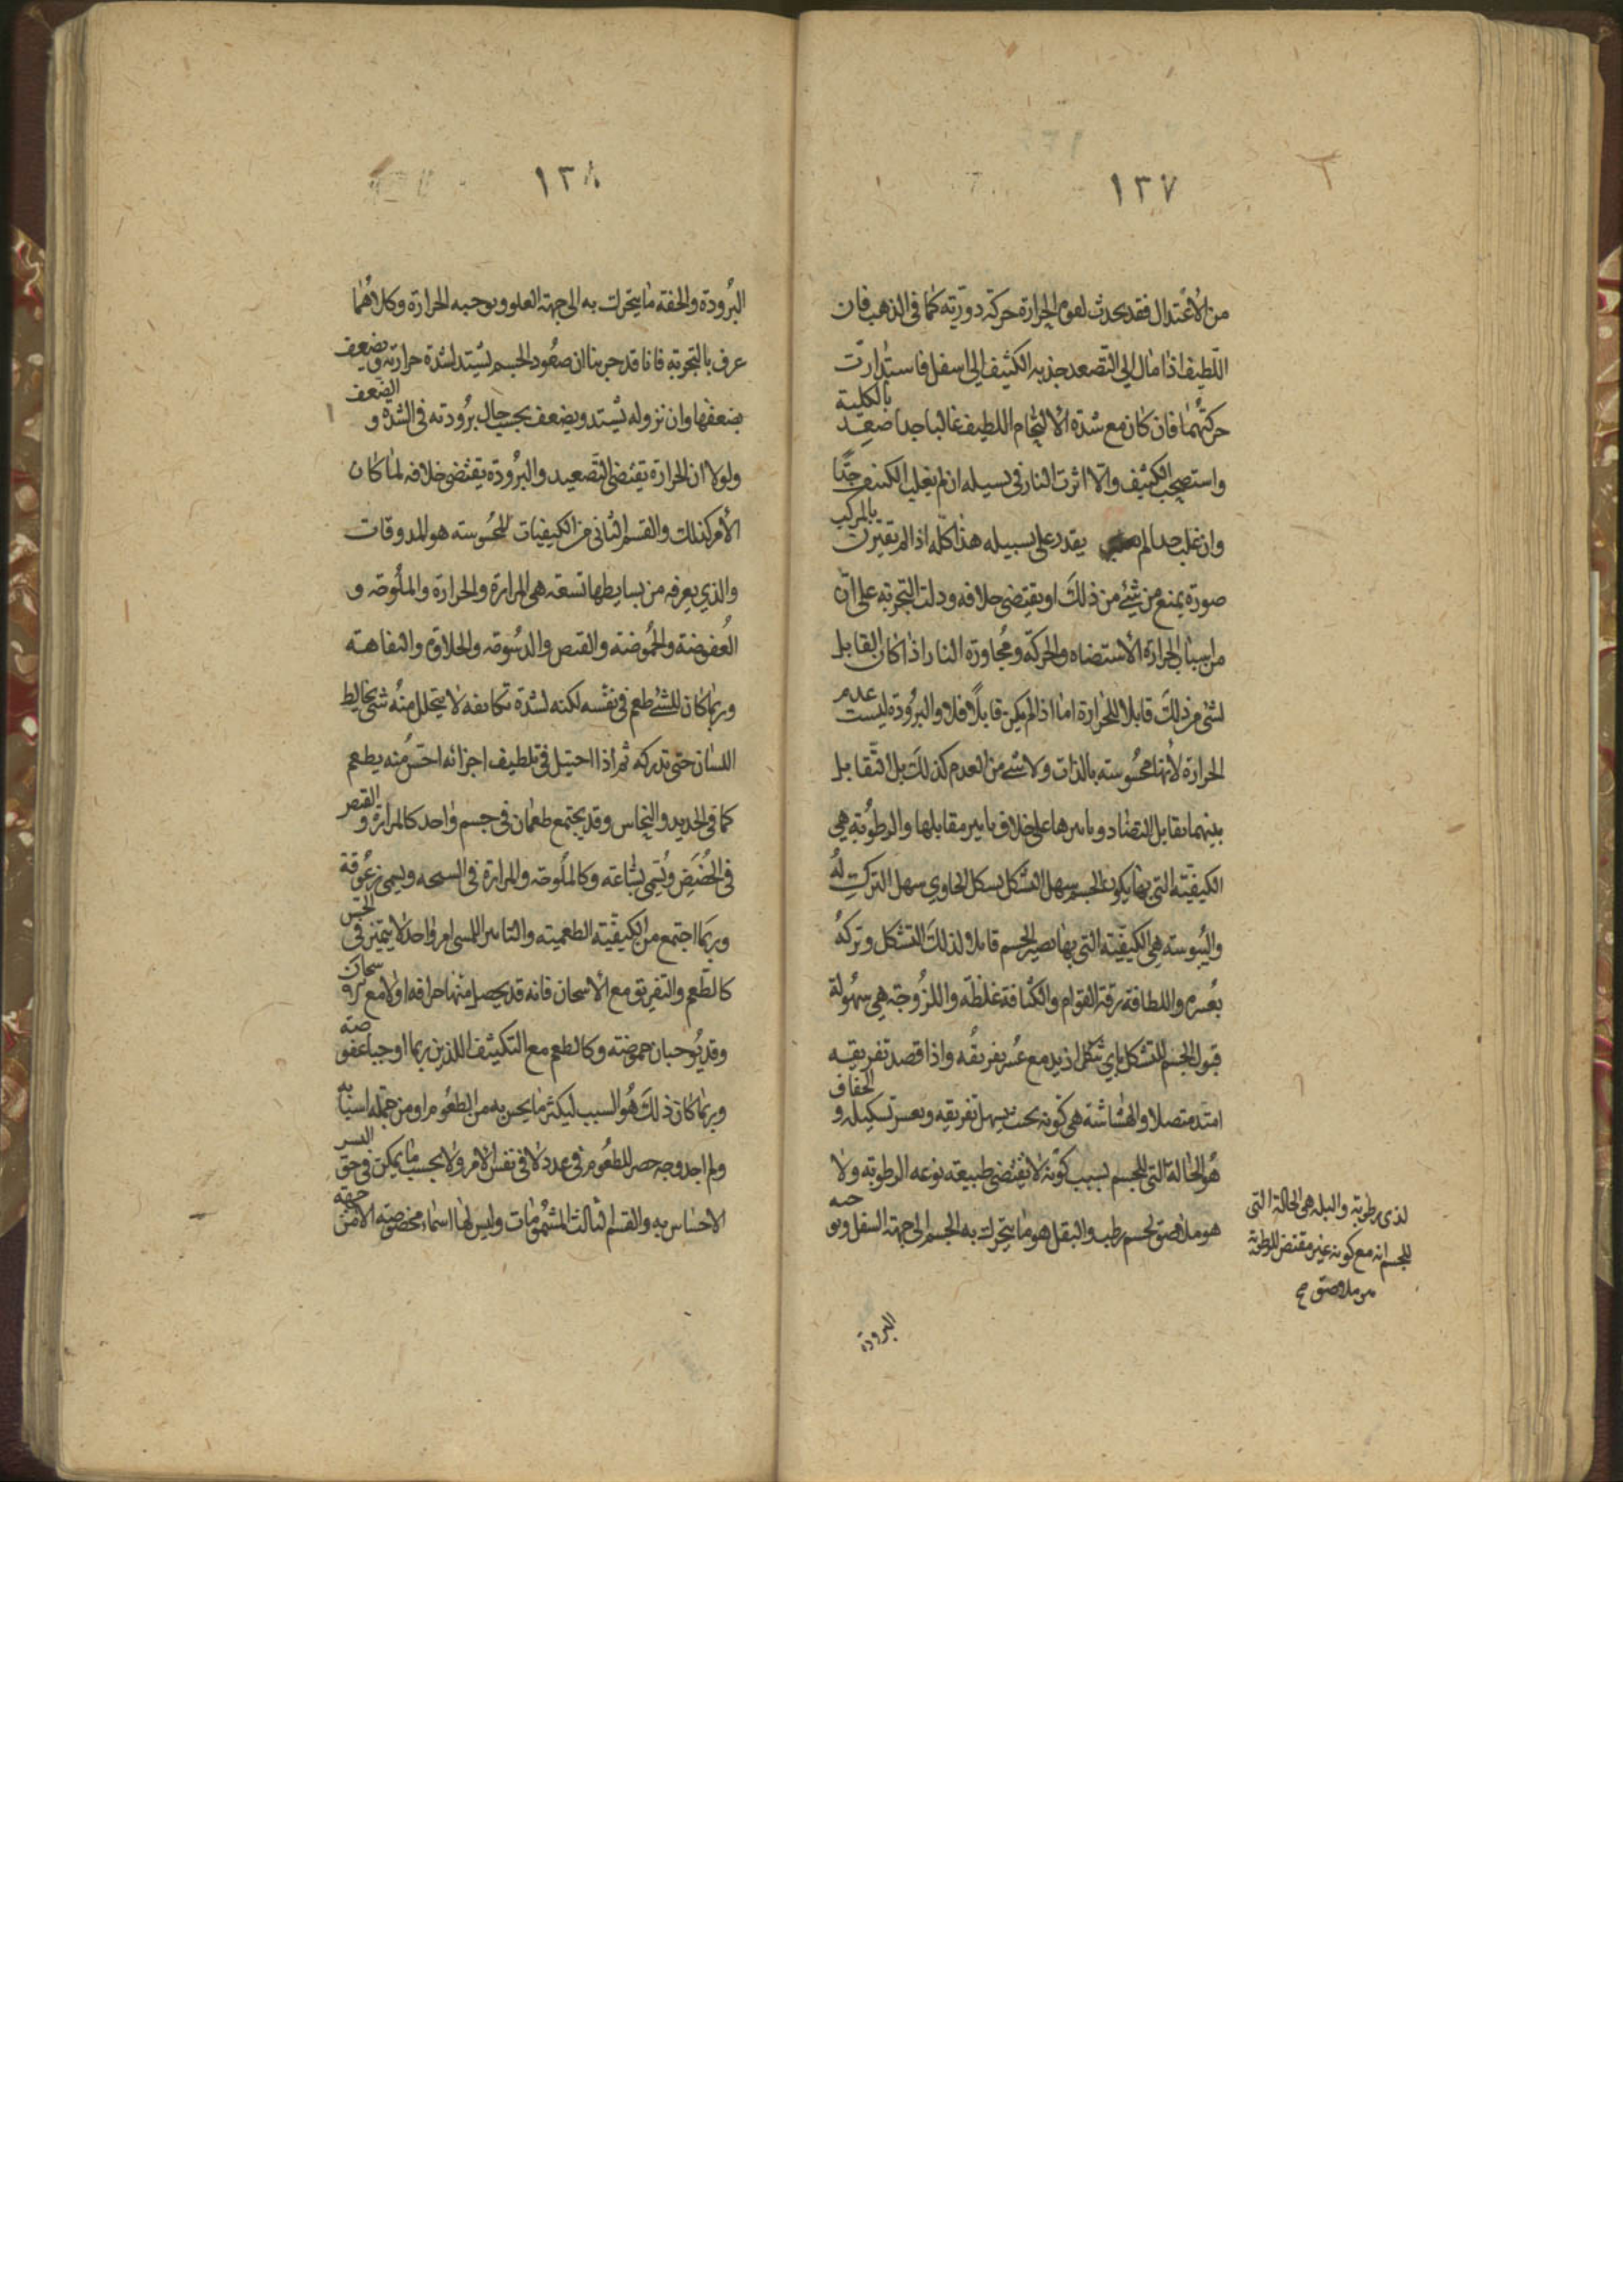 ١٣٧
من الاعتدال فقد يحدث لقوة الحرارة حركة دورية كما في الذهب فان
اللطيف اذا مال الى التصعد جذبه الكثيف الى اسفل فاستدارت
حركتهما فان كان مع شدة الالتحام اللطيف غالبا جدا صعد بالكلية
واستصحب الكثيف والا اثرت النار في تسييله ان لم يغلب الكثيف جدًا
وان غلب جدا لم يقدر على تسييله هذا كله اذا لم تقترن بالمركب
صورة يمنع من شئ من ذلك او يقتضي خلافه ودلت التجربة على ان
من اسباب الحرارة الاستضاه والحركة ومجاورة النار اذا كان القابل
لشئ من ذلك قابلا للحرارة اما اذا لم يكن قابلاً فلا والبرودة ليست عدم
الحرارة لانها محسوسة بالذات ولا شئ من العدم كذلك بل التقابل
بينهما تقابل التضاد وتاثيرها على خلاف تاثير مقابلها والرطوبة هي
الكيفية التي بها يكون الجسم سهل التشكل بشكل الحاوي سهل الترك له
واليبوسة هي الكيفية التي بها يصير الجسم قابلا لذلك التشكل وتركه
بعسر واللطافة رقة القوام والكثافة غلظه واللزوجة هي سهولة
قبول الجسم للتشكل باي شكل اريد مع عسر تفريقه واذا قصد تفريقه
امتد متصلا والهشاشة هي كونه بحيث يسهل تفريقه ويعسر تشكيله و الجفاف
هو الحالة التي للجسم بسبب كونه لا يقتضي طبيعة نوعه الرطوبة ولا
هو ملاصق لجسم رطب والثقل هو ما يتحرك به الجسم الى جهة السفل ويوجبه
لذى رطوبة والبلة هي الحالة التي
للجسم انه مع كونه غير مقتض للرطوبة
هو ملاصق
البرودة
١٣٨
البرودة والخفة ما يتحرك به الى جهة العلو ويوجبه الحرارة وكلاهما
عرف بالتجربة فانا قد جربنا ان صعود الجسم يشتد لشدة حرارته ويضعف
بضعفها وان نزوله يشتد ويضعف بحسب حال برودته في الشدة و الضعف
ولولا ان الحرارة يقتضي التصعيد والبرودة يقتضي خلافه لما كان
الأمر كذلك والقسم الثاني من الكيفيات المحسوسة هو المذوقات
والذي يعرفه من بسايطها تسعة هي المرارة والحرارة والملوحة و
العفوصة والحموضة والقبض والدسومة والحلاوة والتفاهة
وربما كان للشئ طعم في نفسه لكنه لشدة تكاثفه لا يتحلل منه شئ يخالط
اللسان حتى تدركه ثم اذا احتيل في تلطيف اجزائه احس منه بطعم
كما في الحديد والنحاس وقد يجتمع طعمان في جسم واحد كالمرارة و القبض
في الحضض وتسمى بشاعة وكالملوحة والمرارة في السبخة ويسمى زعوقة
وربما اجتمع من الكيفية الطعمية والتاثير اللمسي امر واحد لا يتميز في الحس
كالطعم والتفريق مع الاسخان فانه قد يحصل منها حرافة اولا مع اسخان
وقد يوجبان حموضة وكالطعم مع التكثيف اللذين ربما اوجبا عفوصة
وربما كان ذلك هو السبب ليكثر ما يحس به من الطعوم او من جملة اسبابه
ولم اجد وجه حصر للطعوم في عدد لا في نفس الامر ولا بحسب ما يمكن في حق البشر
الاحساس به والقسم الثالث المشمومات وليس لها اسماء مخصوصة الا من جهة